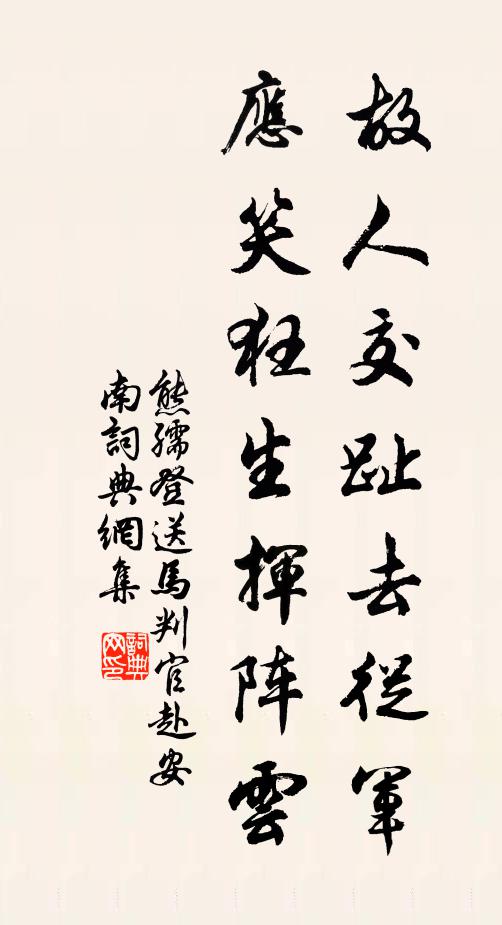 故人交趾去從軍
應笑狂生揮阵雲
熊孺登送馬判官赴安
南詞典網集
詞典网印